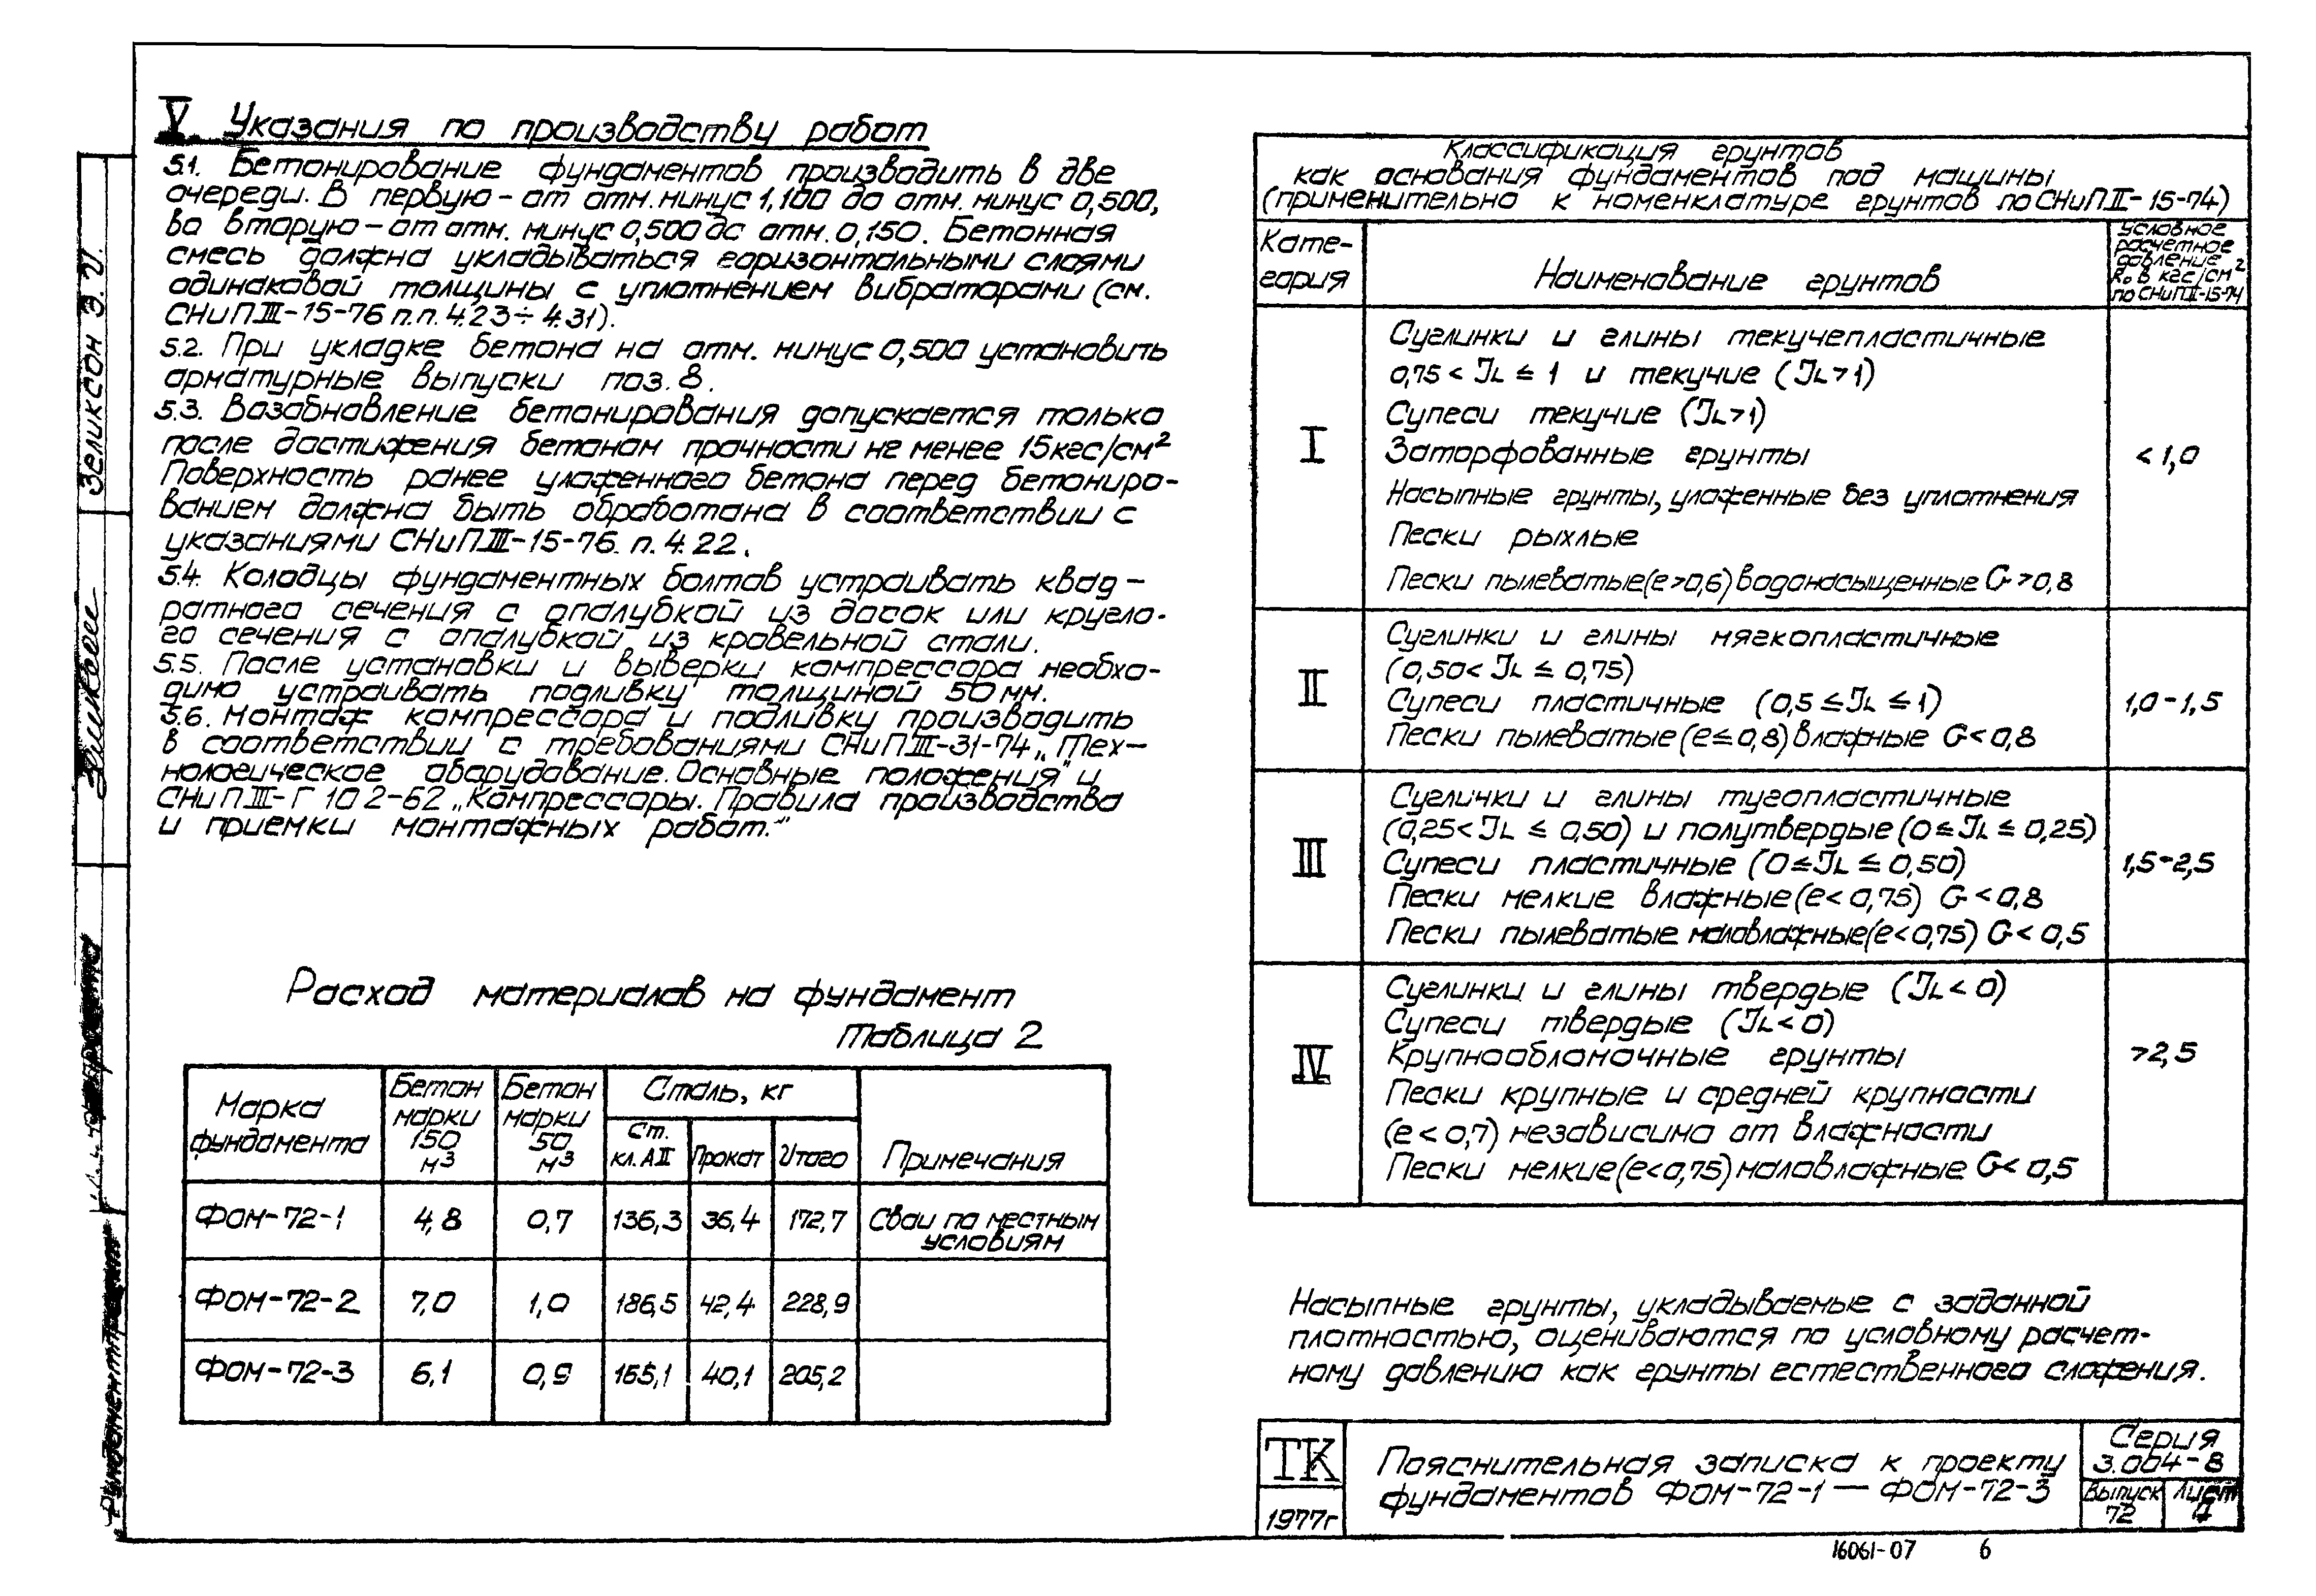 V. Указания по производству работ
5.1. Бетонирование фундаментов производить в две
очереди. В первую – от отм. минус 1,100 до отм. минус 0,500,
во вторую – от отм. минус 0,500 до отм. 0,150. Бетонная
смесь должна укладываться горизонтальными слоями
одинаковой толщины с уплотнением вибраторами (см.
СНиП III-15-76 п.п. 4.23÷4.31).
5.2. При укладке бетона на отм. минус 0,500 установить
арматурные выпуски поз. 8.
5.3. Возобновление бетонирования допускается только
после достижения бетоном прочности не менее 15 кгс/см²
Поверхность ранее уложенного бетона перед бетониро-
ванием должна быть обработана в соответствии с
указаниями СНиП III-15-76. п. 4.22.
5.4. Колодцы фундаментных болтов устраивать квад-
ратного сечения с опалубкой из досок или кругло-
го сечения с опалубкой из кровельной стали.
5.5. После установки и выверки компрессора необхо-
димо устраивать подливку толщиной 50 мм.
5.6. Монтаж компрессора и подливку производить
в соответствии с требованиями СНиП III-31-74 „Тех-
нологическое оборудование. Основные положения" и
СНиП III-Г 10 2-62 „Компрессоры. Правила производства
и приемки монтажных работ."
Расход материалов на фундамент
Таблица 2
Марка фундамента
Бетон марки 150 м³
Бетон марки 50 м³
Сталь, кг
Ст. кл. АII
Прокат
Итого
Примечания
ФОМ-72-1 4,8 0,7 136,3 36,4 172,7 Сваи по местным
условиям
ФОМ-72-2 7,0 1,0 186,5 42,4 228,9
ФОМ-72-3 6,1 0,9 165,1 40,1 205,2
Классификация грунтов
как основания фундаментов под машины
(применительно к номенклатуре грунтов по СНиП II-15-74)
Кате-
гория
Наименование грунтов
Условное
расчетное
давление
R₀ в кгс/см²
по СНиП II-15-74
I
Суглинки и глины текучепластичные
0,75 < JL ≤ 1 и текучие (JL>1)
Супеси текучие (JL>1)
Заторфованные грунты
Насыпные грунты, уложенные без уплотнения
Пески рыхлые
Пески пылеватые (e>0,6) водонасыщенные G>0,8
<1,0
II
Суглинки и глины мягкопластичные
(0,50< JL ≤ 0,75)
Супеси пластичные (0,5 ≤ JL ≤ 1)
Пески пылеватые (e≤0,8) влажные G<0,8
1,0-1,5
III
Суглички и глины тугопластичные
(0,25< JL ≤ 0,50) и полутвердые (0≤JL≤0,25)
Супеси пластичные (0≤JL≤0,50)
Пески мелкие влажные (e<0,75) G<0,8
Пески пылеватые маловлажные (e<0,75) G<0,5
1,5-2,5
IV
Суглинки и глины твердые (JL<0)
Супеси твердые (JL<0)
Крупнообломочные грунты
Пески крупные и средней крупности
(e<0,7) независимо от влажности
Пески мелкие (e<0,75) маловлажные G<0,5
>2,5
Насыпные грунты, укладываемые с заданной
плотностью, оцениваются по условному расчет-
ному давлению как грунты естественного сложения.
ТК
1977г
Пояснительная записка к проекту
фундаментов ФОМ-72-1 — ФОМ-72-3
Серия
3.004-8
Выпуск
72
Лист
4
16061-07 6
Зеликсон З. И.